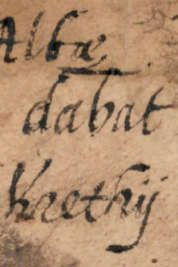 Albæ
dabat
Krethij